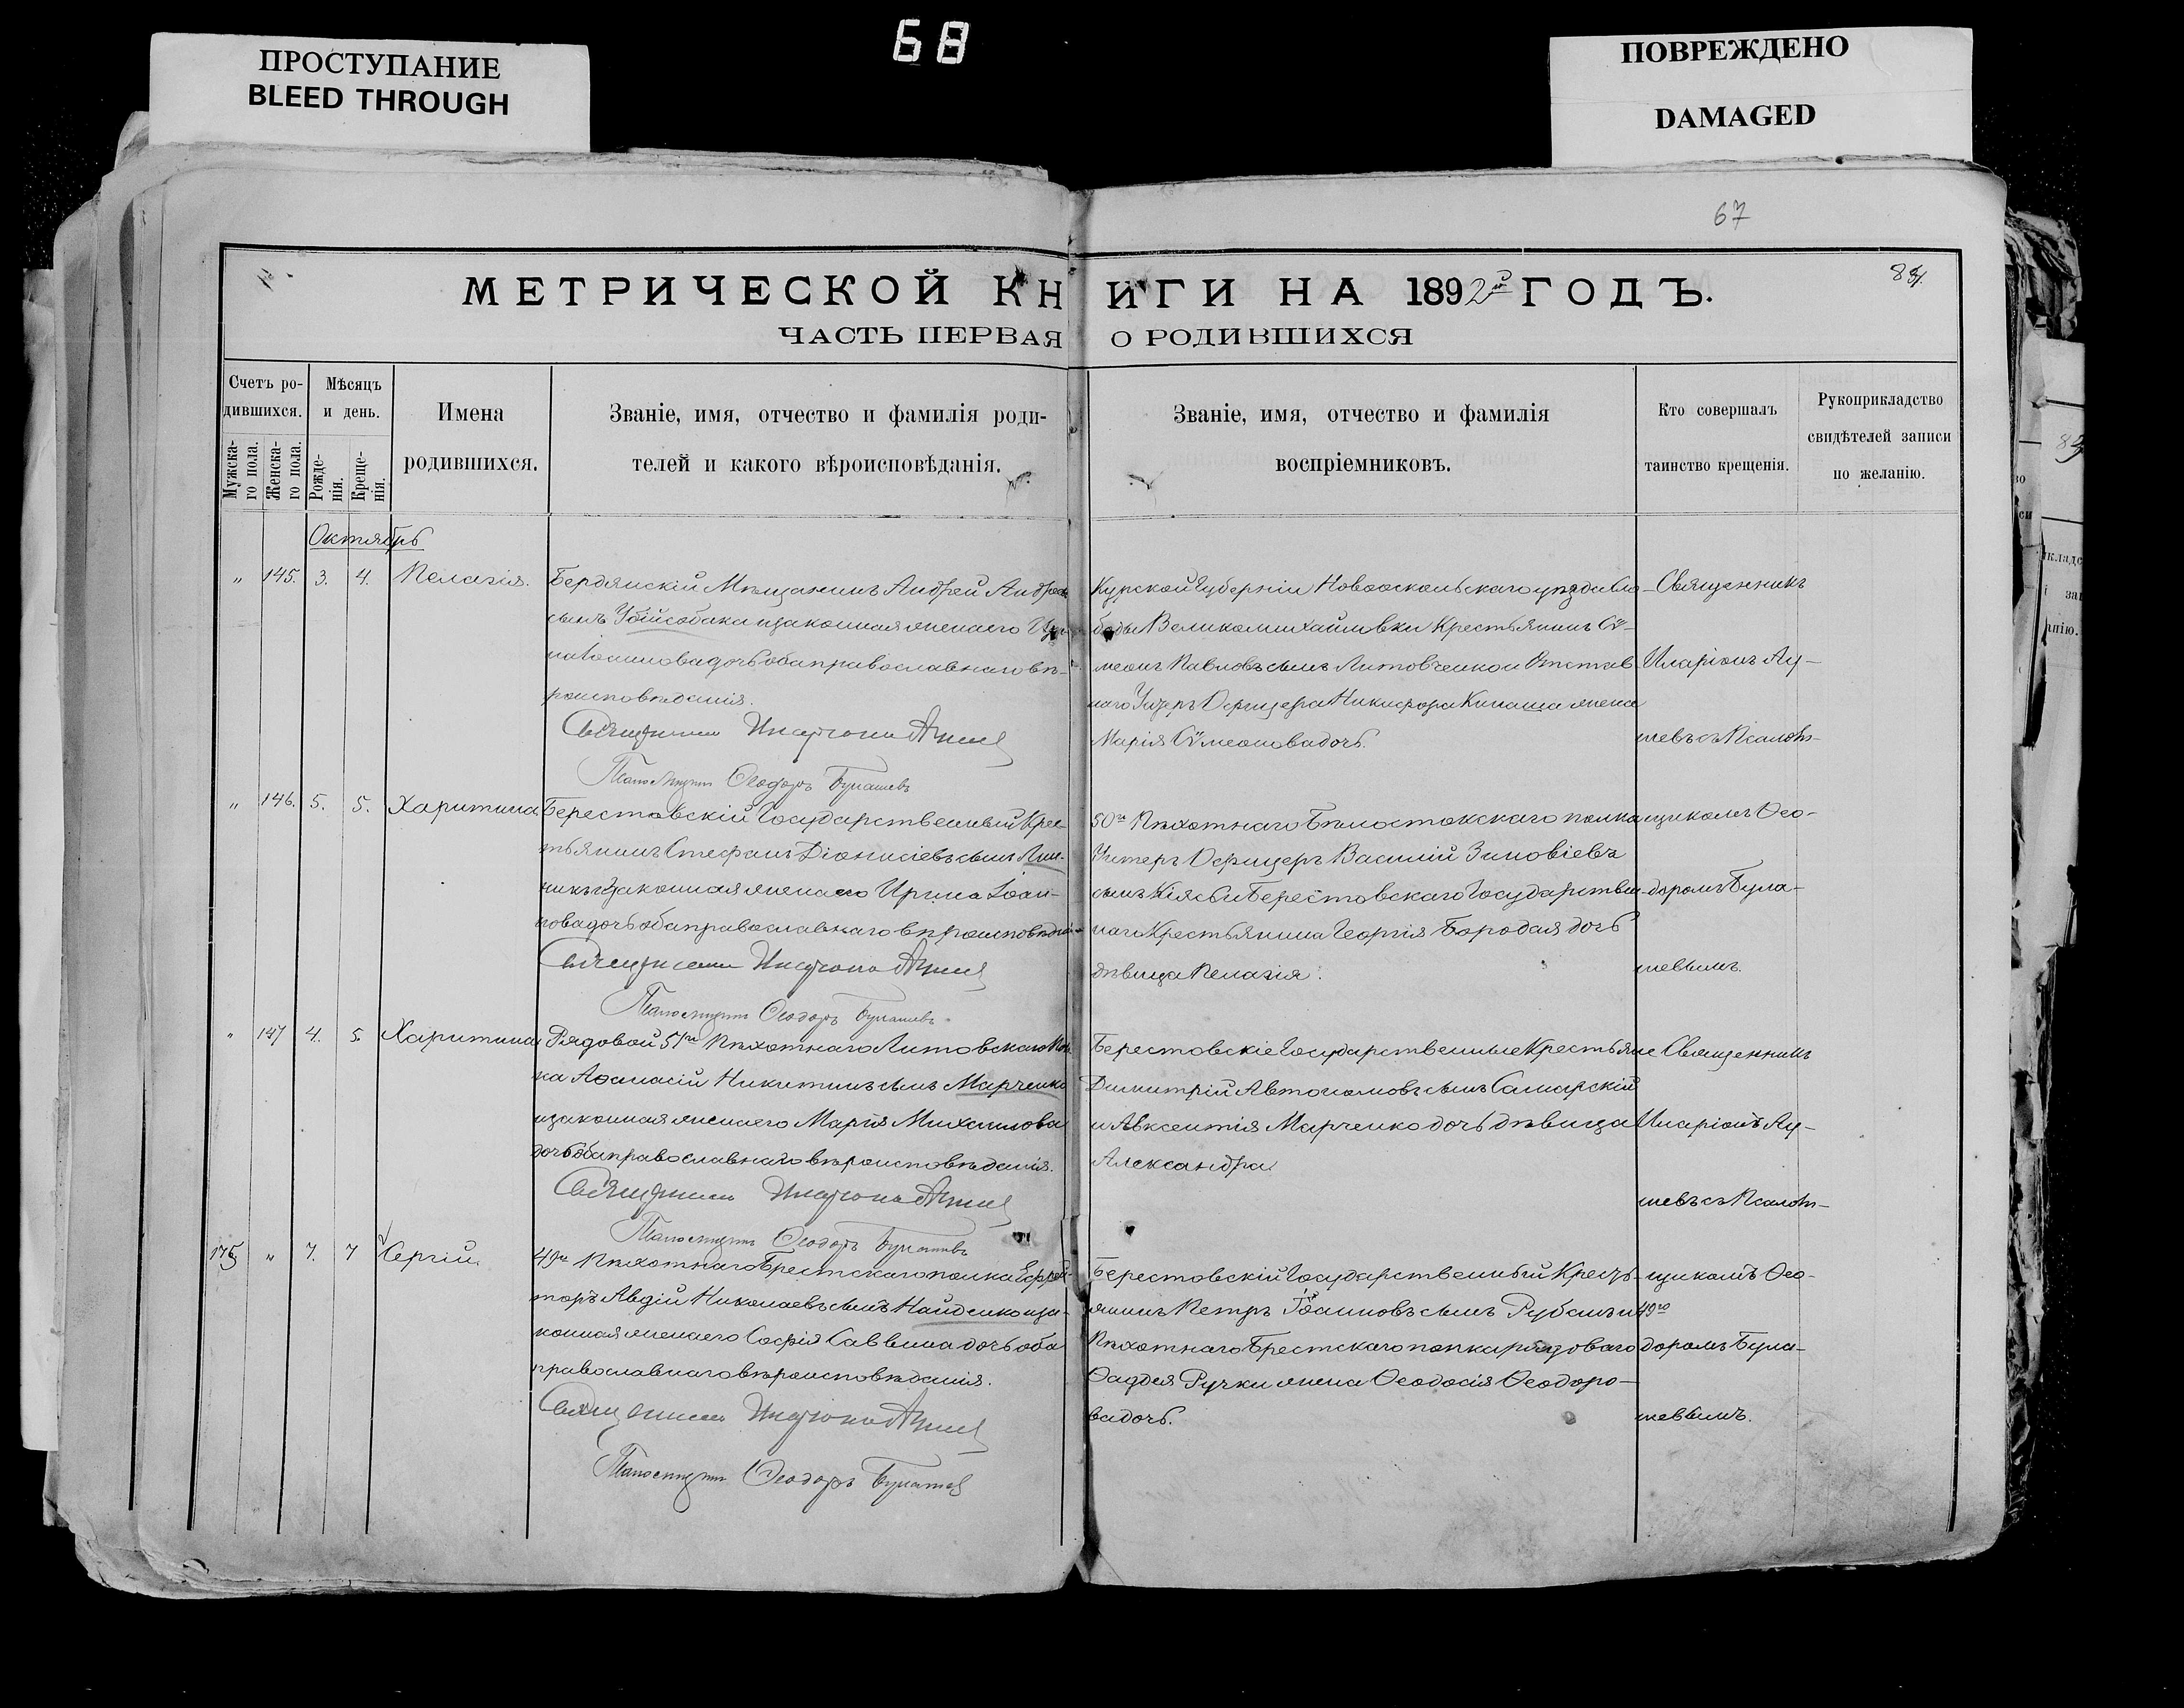 68
ПРОСТУПАНИЕ
BLEED THROUGH
ПОВРЕЖДЕНО
DAMAGED
67
МЕТРИЧЕСКОЙ КНИГИ НА 1892й ГОДЪ.
ЧАСТЬ ПЕРВАЯ О РОДИВШИХСЯ
Счетъ ро-
дившихся.
Мужска-
го пола.
Женска-
го пола.
Мѣсяцъ
и день.
Рожде-
нія.
Креще-
нія.
Имена
родившихся.
Званіе, имя, отчество и фамилія роди-
телей и какого вѣроисповѣданія.
Званіе, имя, отчество и фамилія
воспріемниковъ.
Кто совершалъ
таинство крещенія.
Рукоприкладство
свидѣтелей записи
по желанію.
Октябрь
" 145. 3. 4. Пелагія.
Бердянскій Мѣщанинъ Андрей
сынъ Убійсобака и законная жена его
Іоаннова дочь оба православнаго вѣ-
роисповѣданія.
Священникъ Иларіонъ
Псаломщикъ Ѳеодоръ Булашевъ
Курской Губерніи Новооскольскаго уѣзда Сло-
боды Великомихайловки Крестьянинъ Сѵ-
меонъ Павловъ сынъ Литовченко и Отстав-
наго Унтеръ Офицера Никифора Кинаша жена
Марія Сѵмеонова дочь.
Священникъ
Иларіонъ
шевъ съ Псалом-
" 146. 5. 5. Харитина.
Берестовскій Государственный Крес-
тьянинъ Стефанъ Діонисіевъ сынъ
и законная жена его Ирина Іоан-
нова дочь оба православнаго вѣроисповѣданія
Священникъ Иларіонъ
Псаломщикъ Ѳеодоръ Булашевъ
50го Пѣхотнаго Бѣлостокскаго полка
Унтеръ Офицеръ Василій Зиновіевъ
сынъ и Берестовскаго Государствен-
наго Крестьянина Георгія Бородая дочь
дѣвица Пелагія.
щикомъ Ѳео-
доромъ Була-
шевымъ.
" 147 4. 5. Харитина
Рядовой 51го Пѣхотнаго Литовскаго Пол-
ка Аѳанасій Никитинъ сынъ Марченко
и законная жена его Марія Михаилова
дочь оба православнаго вѣроисповѣданія.
Священникъ Иларіонъ
Псаломщикъ Ѳеодоръ Булашевъ
Берестовскіе Государственные Крестьяне
Димитрій Автономовъ сынъ Самарскій
и Авксентія Марченко дочь дѣвица
Александра.
Священникъ
Иларіонъ
шевъ съ Псалом-
175 " 7. 7 Сергій.
49го Пѣхотнаго Брестскаго полка Ефрей-
торъ Авдій Николаевъ сынъ Найденко и за-
конная жена его Софія Саввина дочь оба
православнаго вѣроисповѣданія.
Священникъ Иларіонъ
Псаломщикъ Ѳеодоръ Булашевъ
Берестовскій Государственный Крестъ-
янинъ Петръ Іоанновъ сынъ Рубанъ и 49го
Пѣхотнаго Брестскаго полка рядоваго
Ѳаддея Ручки жена Ѳеодосія Ѳеодоро-
ва дочь.
щикомъ Ѳео-
доромъ Була-
шевымъ.